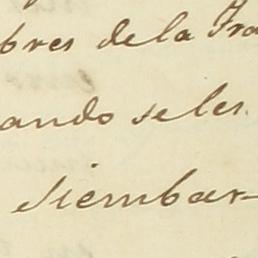 bres de la Fra
ando se les
siembar-